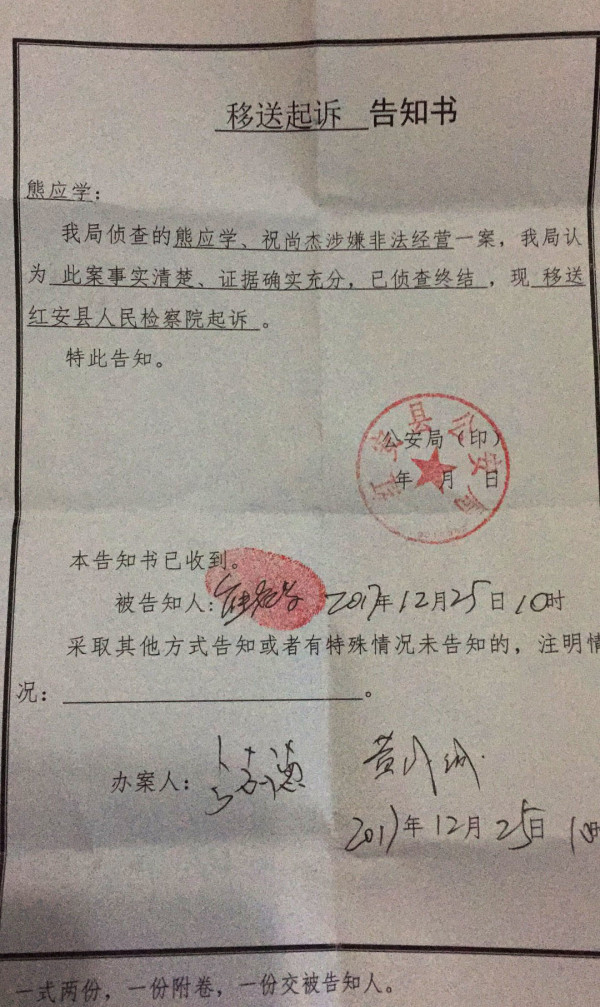 移送起诉 告知书
熊应学：
我局侦查的熊应学、祝尚杰涉嫌非法经营一案，我局认
为 此案事实清楚、证据确实充分，已侦查终结 ，现 移送
红安县人民检察院起诉 。
特此告知。
红安县公安局
公安局（印）
年 月 日
本告知书已收到。
被告知人：熊应学 2017年12月25日10时
采取其他方式告知或者有特殊情况未告知的，注明情
况：。
办案人：
2017年12月25日 10时
一式两份，一份附卷，一份交被告知人。